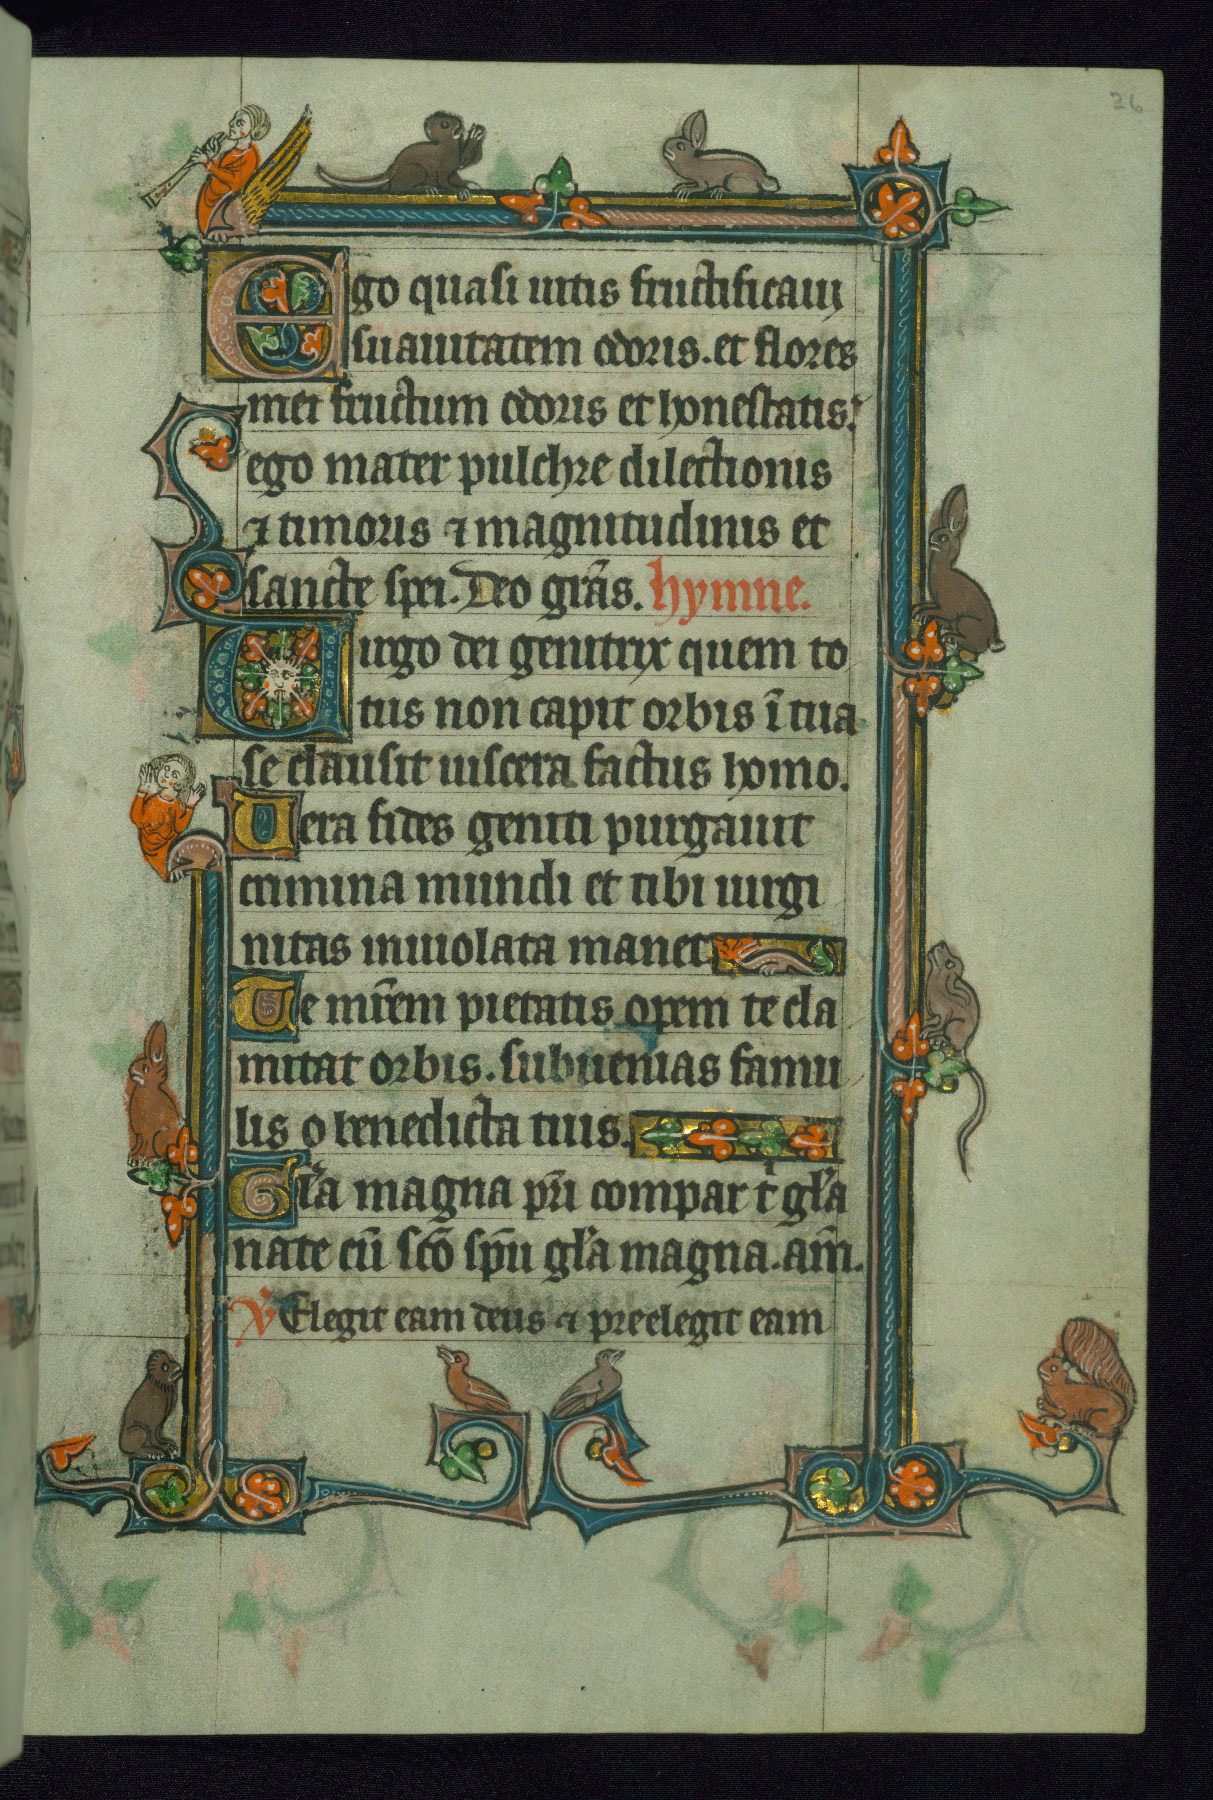 26
Ego quasi uitis fructificaui
suauitatem odoris. et flores
mei fructum odoris et honestatis.
ego mater pulchre dilectionis
⁊ timoris ⁊ magnitudinis et
sancte spei. Deo grãs. hymne.
Uirgo dei genitrix quem to
tus non capit orbis ĩ tua
se clausit uiscera factus homo.
Uera fides geniti purgauit
crimina mundi et tibi uirgi
nitas inuiolata manet
Te mr̃em pietatis opem te cla
mitat orbis. subuenias famu
lis o benedicta tuis.
Gl̃a magna pr̃i compar t̉ gl̃a
nate cũ sc̃o sp̃u gl̃a magna. am̃.
℣ Elegit eam deus ⁊ preelegit eam